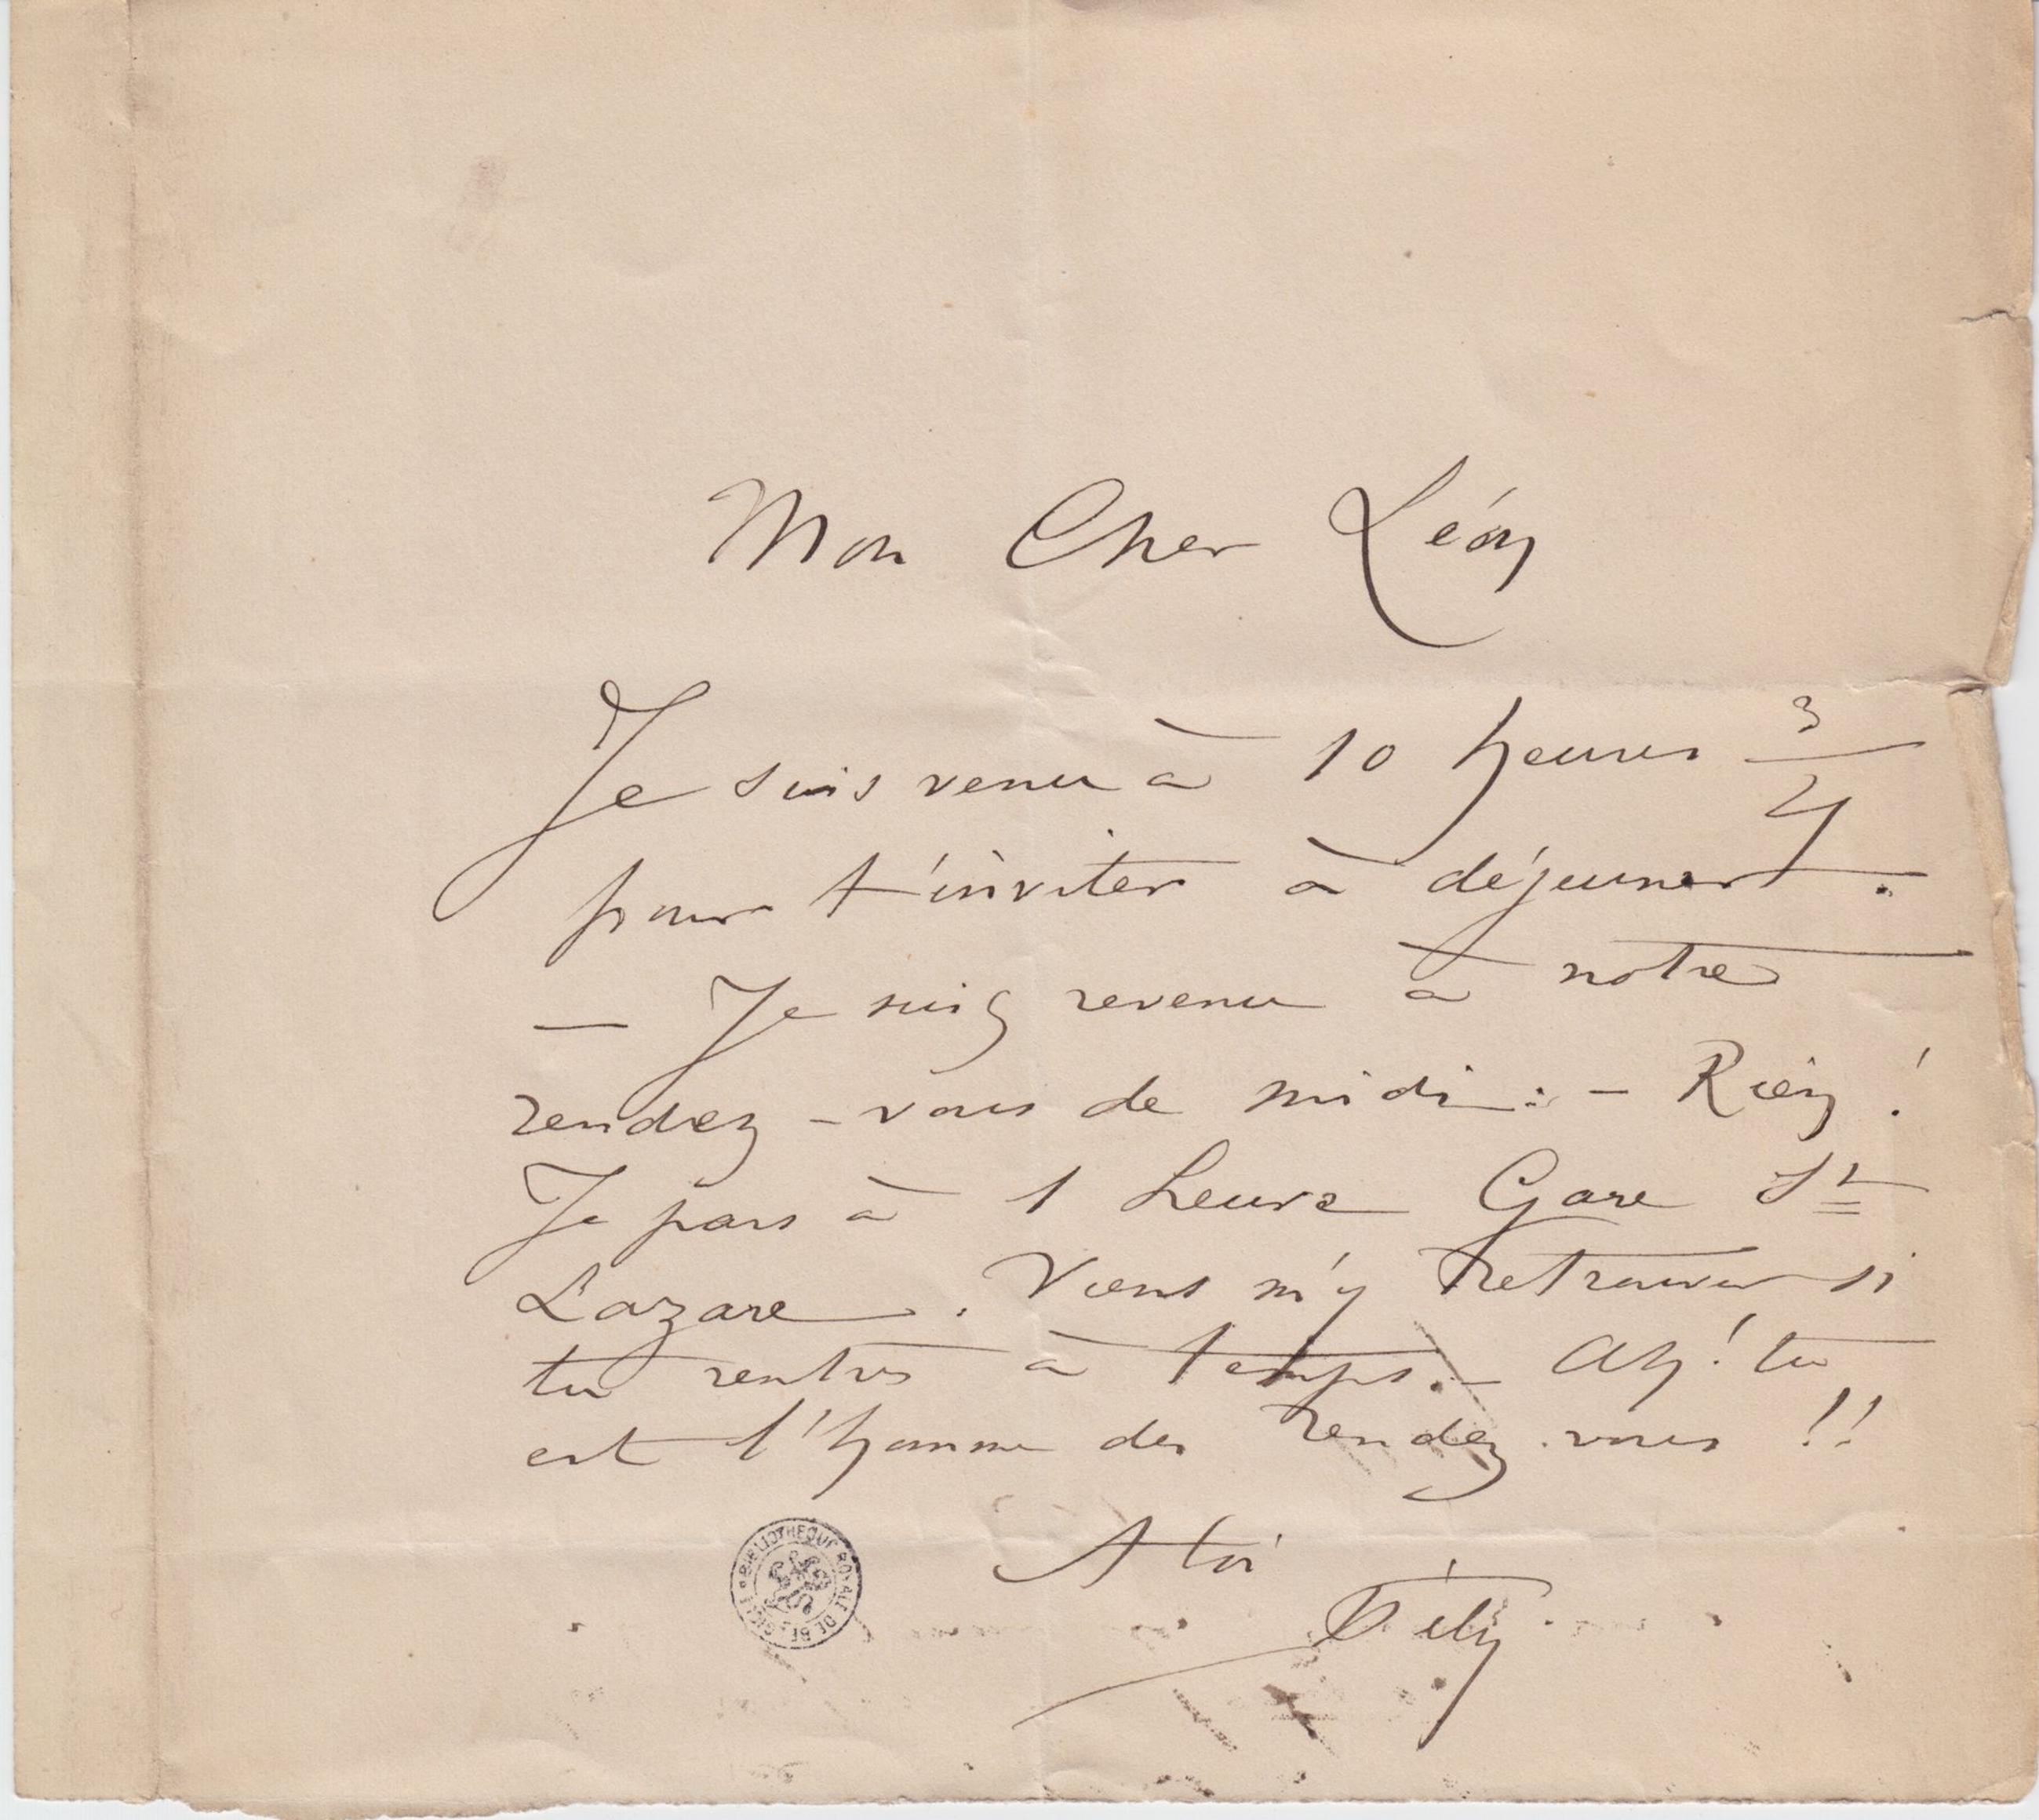 Mon Cher Léon
Je suis venu à 10 heures 3/4
pour t'inviter à déjeuner.
— Je suis revenu à notre
rendez-vous de midi: — Rien!
Je pars à 1 heure Gare St
Lazare. Viens m'y retrouver si
tu rentres à temps. — Ah! tu
est l'homme des rendez-vous!!
A toi
Fély
BIBLIOTHEQUE ROYALE DE BELGIQUE